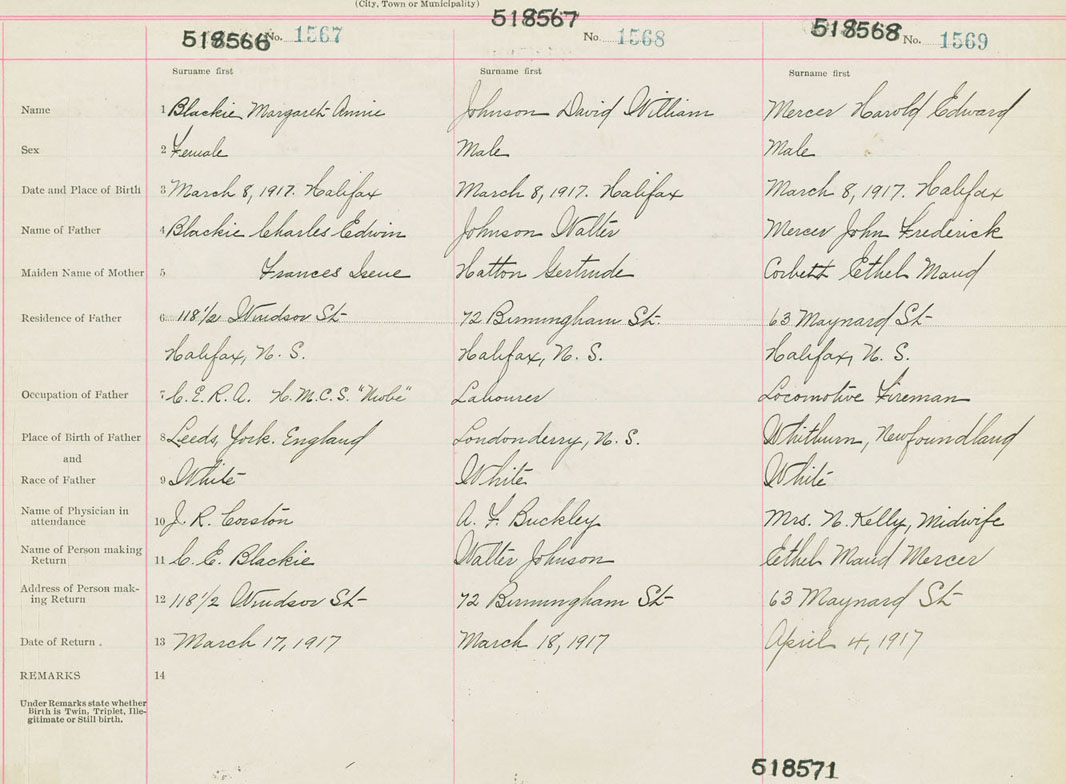 (City, Town or Municipality)
518566 No. 1567 518567 No. 1568 518568 No. 1569
Surname first Surname first Surname first
Name 1 Blackie Margaret Annie Johnson David William Mercer Harold Edward
Sex 2 Female Male Male
Date and Place of Birth 3 March 8, 1917. Halifax March 8, 1917. Halifax March 8, 1917. Halifax
Name of Father 4 Blackie Charles Edwin Johnson Walter Mercer John Frederick
Maiden Name of Mother 5 Frances Irene Hatton Gertrude Corbett Ethel Maud
Residence of Father 6 118 1/2 Windsor St 72 Birmingham St. 63 Maynard St
Halifax, N. S. Halifax, N. S. Halifax, N. S.
Occupation of Father 7 C. E. R. A. H. M. C. S. "Niobe" Labourer Locomotive Fireman
Place of Birth of Father 8 Leeds, York. England Londonderry, N. S. Whitburn, Newfoundland
and
Race of Father 9 White White White
Name of Physician in
attendance 10 J. R. Corston A. F. Buckley Mrs. N. Kelly, Midwife
Name of Person making
Return 11 C. E. Blackie Walter Johnson Ethel Maud Mercer
Address of Person mak-
ing Return 12 118 1/2 Windsor St 72 Birmingham St 63 Maynard St
Date of Return . 13 March 17, 1917 March 18, 1917 April 4, 1917
REMARKS 14
Under Remarks state whether
Birth is Twin, Triplet, Ille-
gitimate or Still birth.
518571